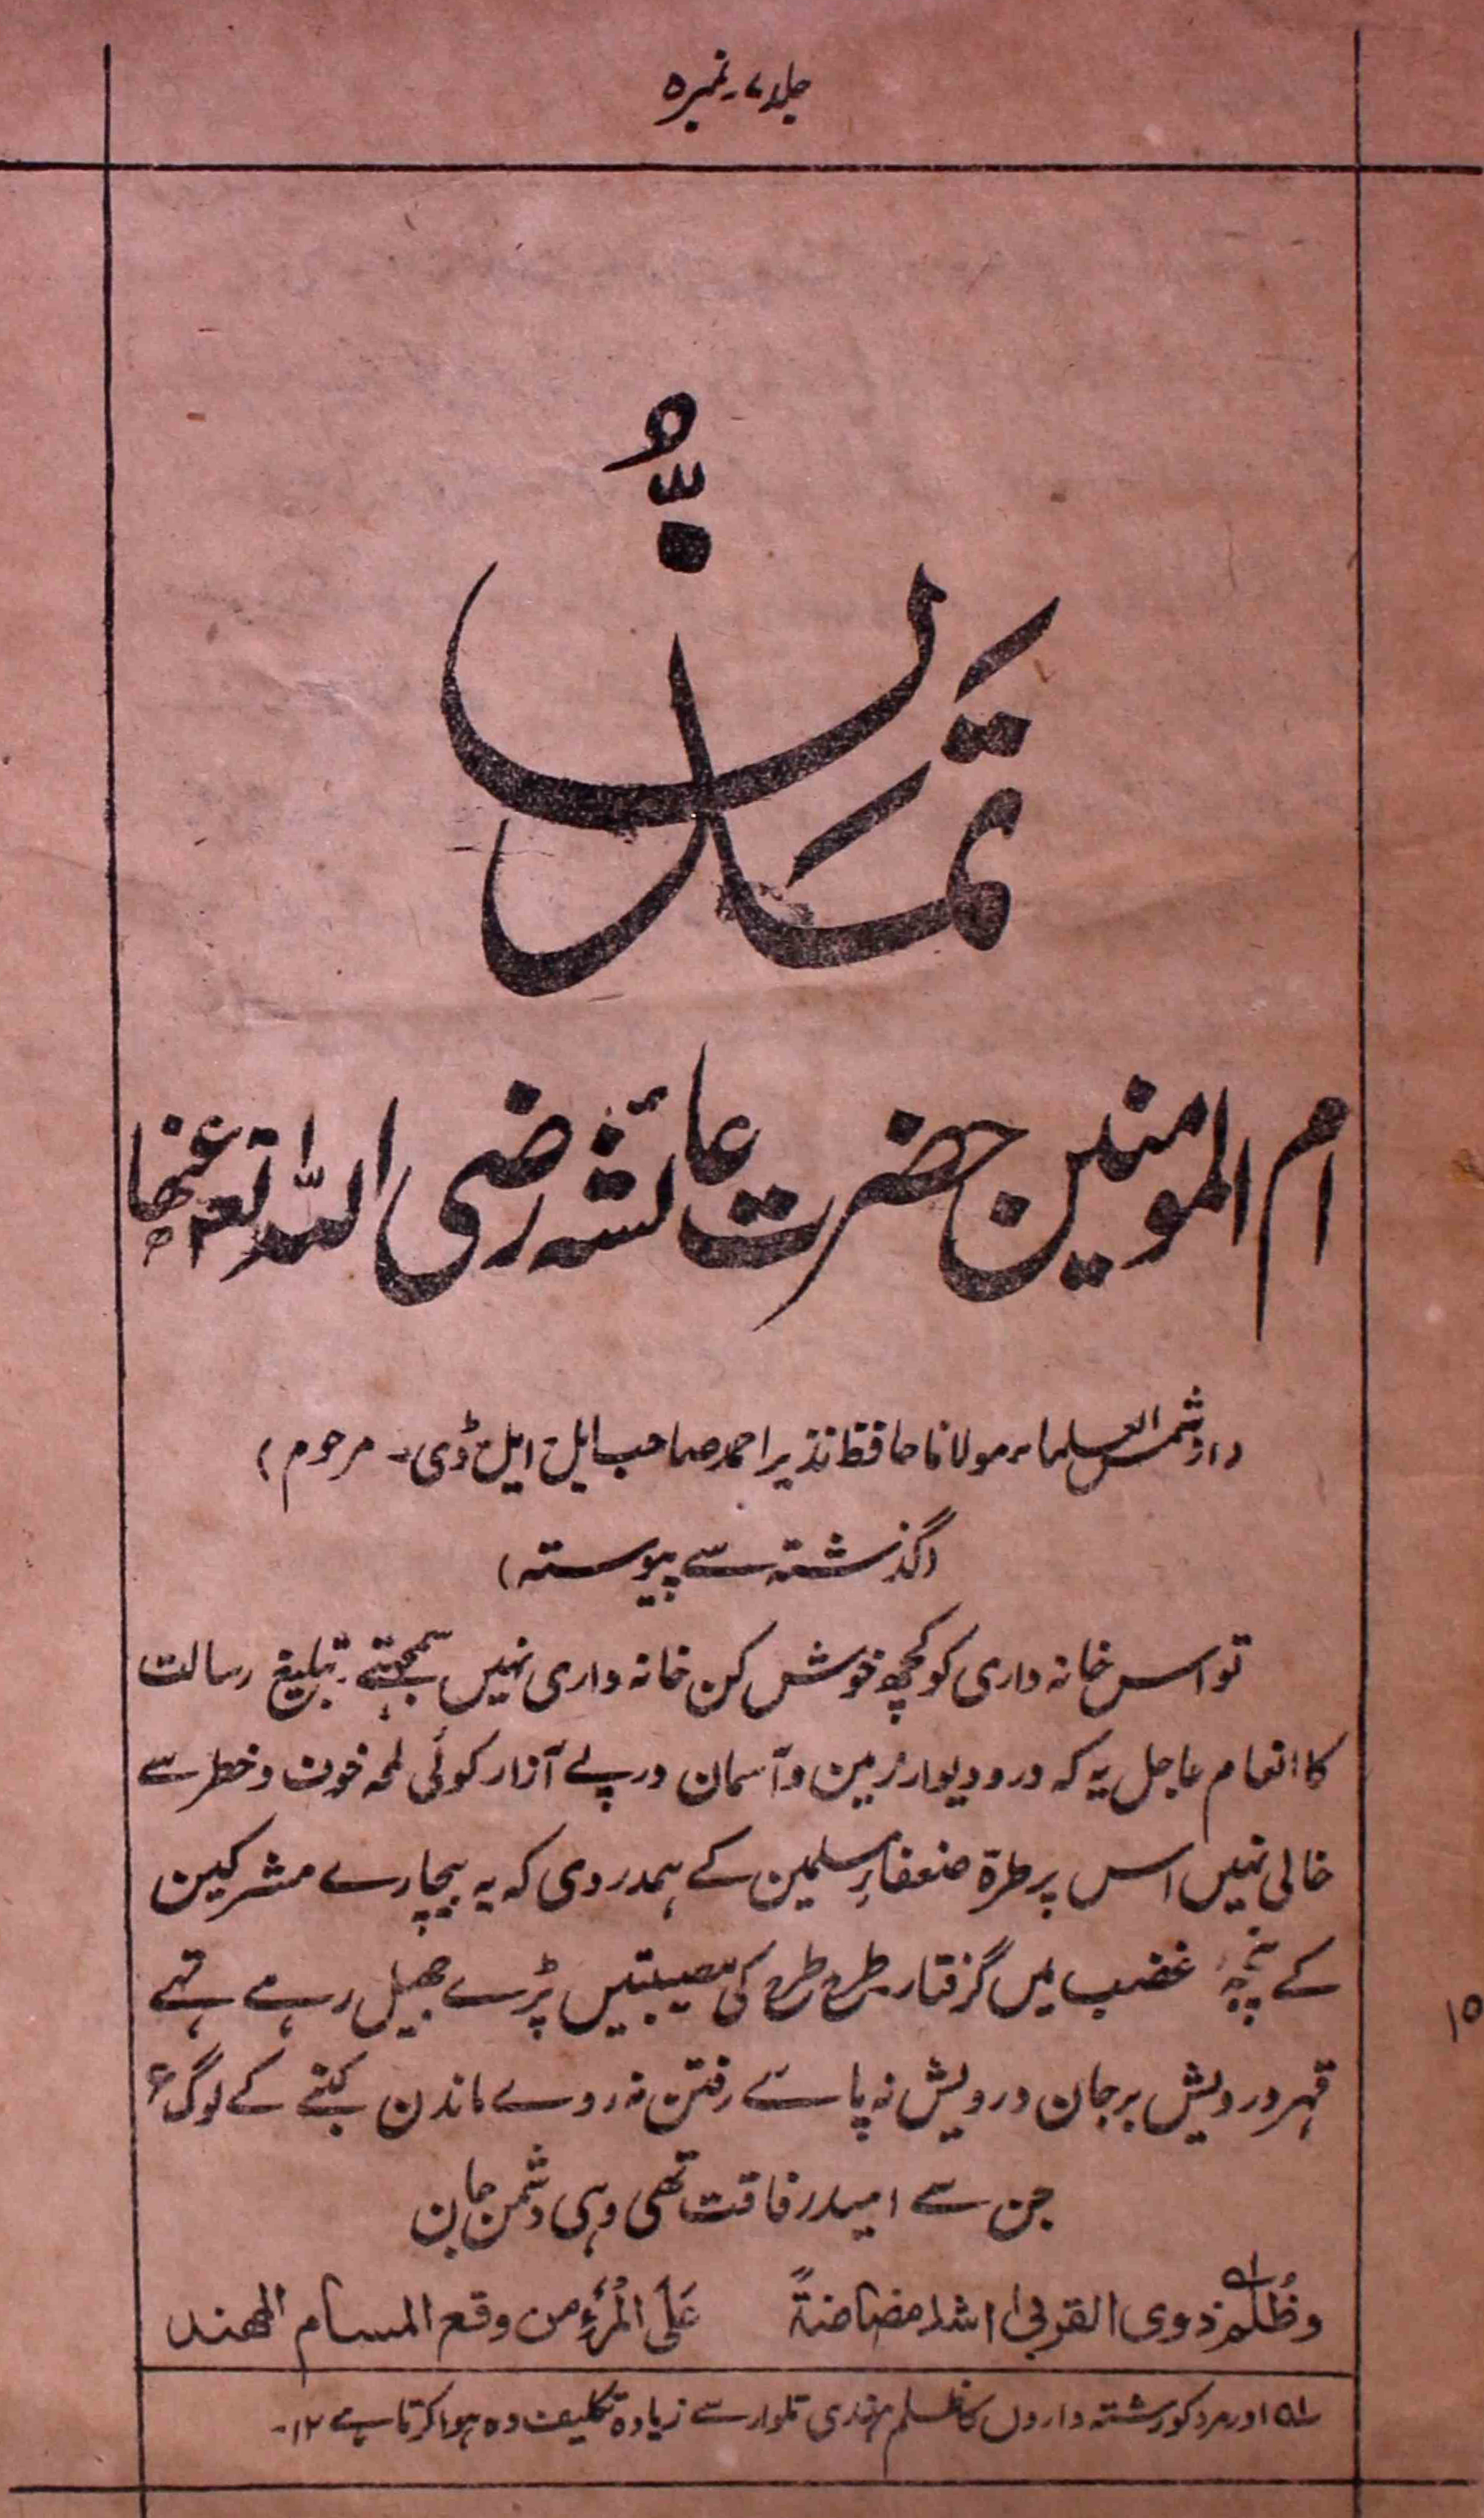 جلد ۷ - نمبر ۵
تمدّن
ام المومنین حضرت عائشہ رضی اللہ تعہ عنہا
(از شمس العلماء مولانا حافظ نذیر احمد صاحب ایل ایل ڈی - مرحوم)
(گذشتہ سے پیوستہ)
تو اس خانہ داری کو کچھ خوش کن خانہ داری نہیں سمجھتے - تبلیغ رسالت
کا انعام عاجل یہ کہ در و دیوار زمین و آسمان درپے آزار کوئی لمحہ خوف و خطر سے
خالی نہیں اس پر طرۃ ضعفاءِ مسلمین کے ہمدردی کہ یہ بیچارے مشرکین
کے پنجۂ غضب میں گرفتار طرح طرح کی مصیبتیں پڑے جھیل رہے تہے
قہر درویش بر جان درویش نہ پاے رفتن نہ روے ماندن کہنے کے لوگ ؏
جن سے امید رفاقت تھی وہی دشمن جان
وظُلم ذوی القربیٰ اشد مضاضۃً عَلَی المُرْءِ من وقع الحسام المهند
۱۵
۱ه اور مرد کو رشتہ داروں کا ظلم ہندی تلوار سے زیادہ تکلیف دہ ہوا کرتا ہے ۱۲-